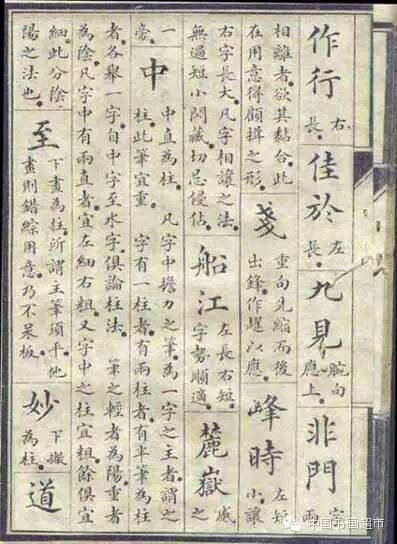 作行 右
長
佳於 左
長
九見 腕勾
應上
非門 字
兩
相離者欲其黏合。此
在用意得顧揖之形。
戔 重勾先縮而後
出鋒作趯以應
峰時 左短
小讓
右字長大。凡字相讓之法。
無過短小閃藏。切忌侵佔。
船江 左長右短。
字勢順適。
麓嶽
之
一
旁。
中 中直為柱。凡字中擔力之筆。為一字之主者。謂之
柱。此筆宜重。字有一柱者。有兩柱者。有半筆為柱
者。各舉一字。自中字至水字。俱論柱法。筆之輕者為陽。重者
為陰。凡字中有兩直者。宜左細右粗。又字中之柱宜粗。餘俱宜
細。此分陰
陽之法也。
至 下畫為柱。所謂主筆須平。他
畫則錯綜用意。乃不呆板。
妙 下撇
為柱。
道
中国书画超市